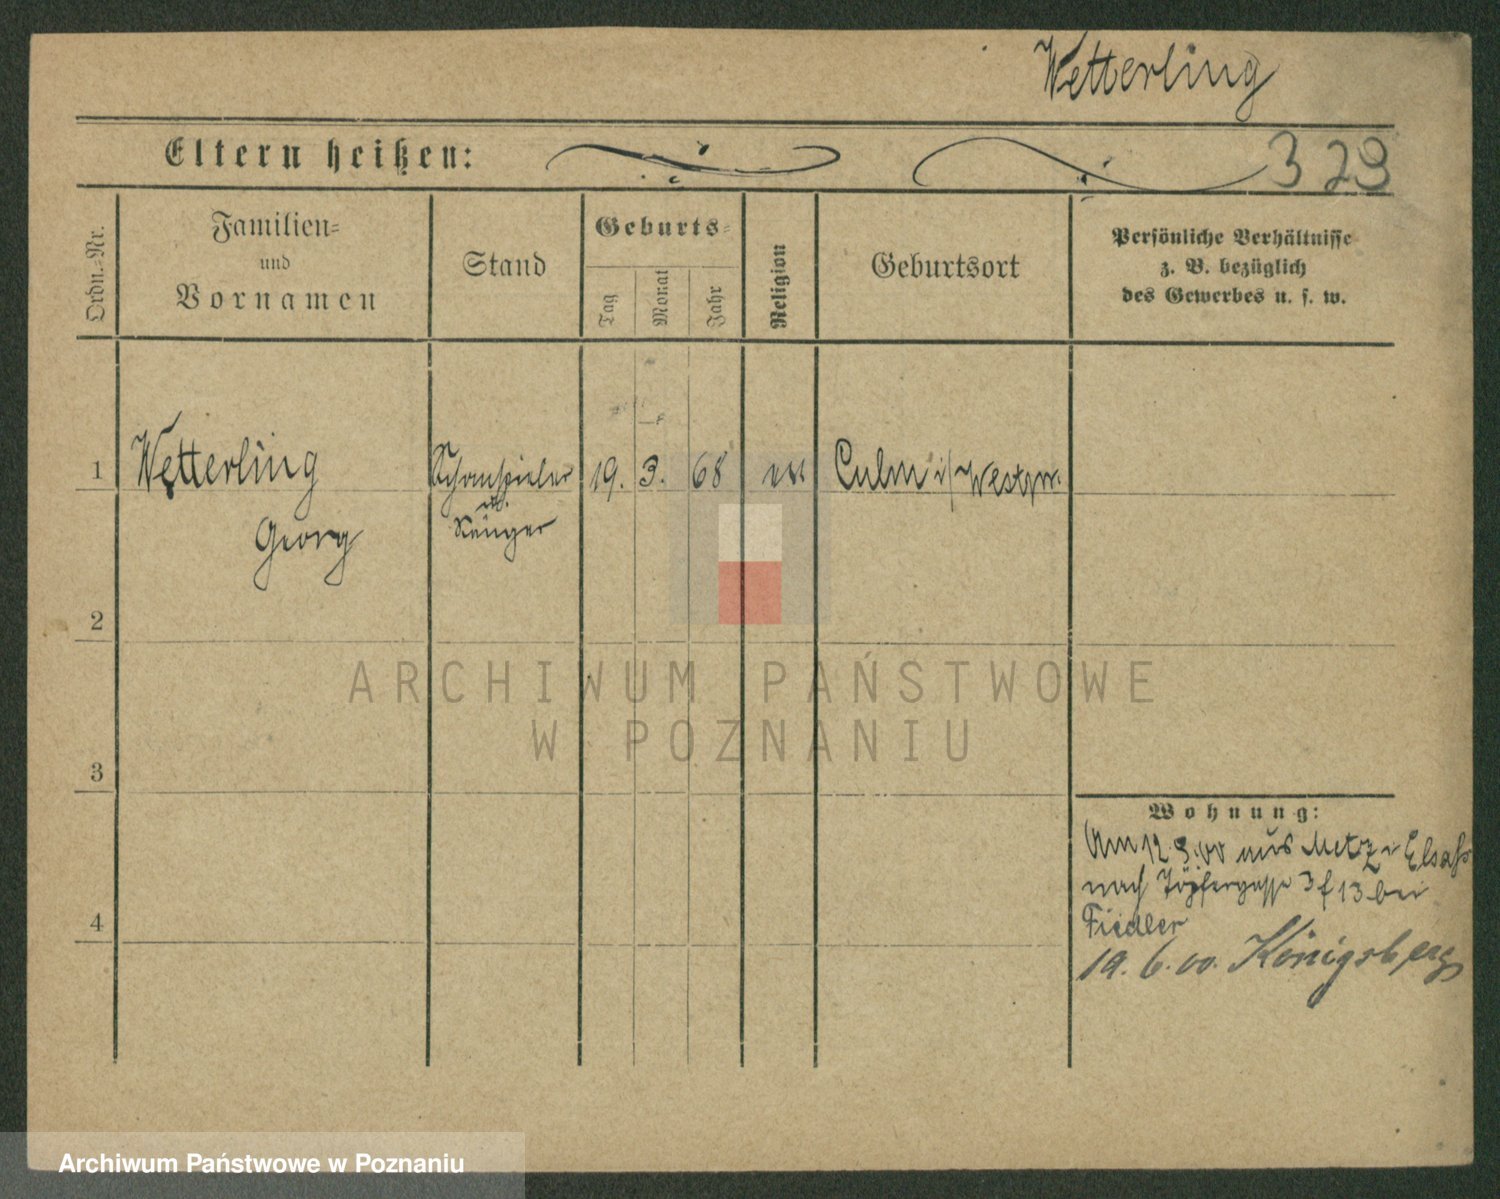 Wetterling
Eltern heißen:
329
Ordn.-Nr.
Familien-
und
Vornamen
Stand
Geburts-
Tag
Monat
Jahr
Religion
Geburtsort
Persönliche Verhältnisse
z. B. bezüglich
des Gewerbes u. s. w.
1
Wetterling
Georg
Schauspieler
u.
Sänger
19.
3.
68
ev.
Culm i/Westpr.
2
3
4
Wohnung:
Am 12.3.00 aus Metz i Elsaß
nach Töpfergasse 3 f 13 bei
Fiedler
19.6.00. Königsberg
ARCHIWUM PAŃSTWOWE
W POZNANIU
Archiwum Państwowe w Poznaniu